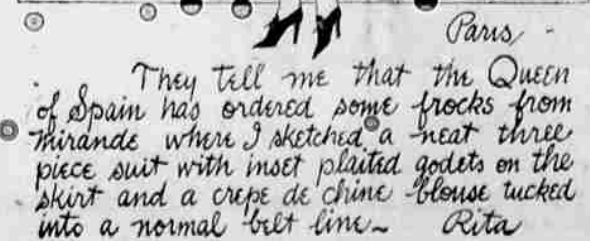 Paris -
They tell me that the Queen
of Spain has ordered some frocks from
Mirande where I sketched a neat three
piece suit with inset plaited godets on the
skirt and a crepe de chine blouse tucked
into a normal belt line~ Rita